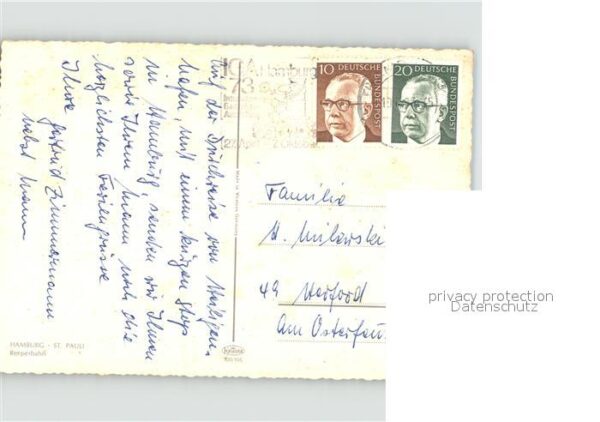 Auf der Durchreise von Heiligen-
hafen, mit einem kurzen Stop
in Hamburg, senden wir Ihnen
sowie Ihrem Mann noch die
herzlichsten Feriengrüsse
Ihre Gertrud Zimmermann
nebst Mann
HAMBURG - ST. PAULI
Reeperbahn
IGA Hamburg
73
10 DEUTSCHE BUNDESPOST
20 DEUTSCHE BUNDESPOST
Familie
H. Milewski
49 Herford
Am Osterfeu
privacy protection
Datenschutz